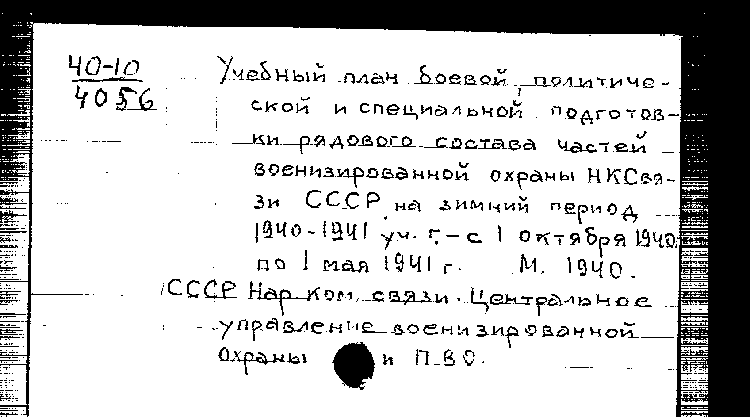 40-10
4056
Учебный план боевой, политиче-
ской и специальной подготов-
ки рядового состава частей
военизированной охраны НКСвя-
зи СССР на зимний период
1940-1941 уч. г. - с 1 октября 1940
по 1 мая 1941 г. М. 1940.
СССР Нар ком. связи. Центральное
управление военизированной
охраны и ПВО.